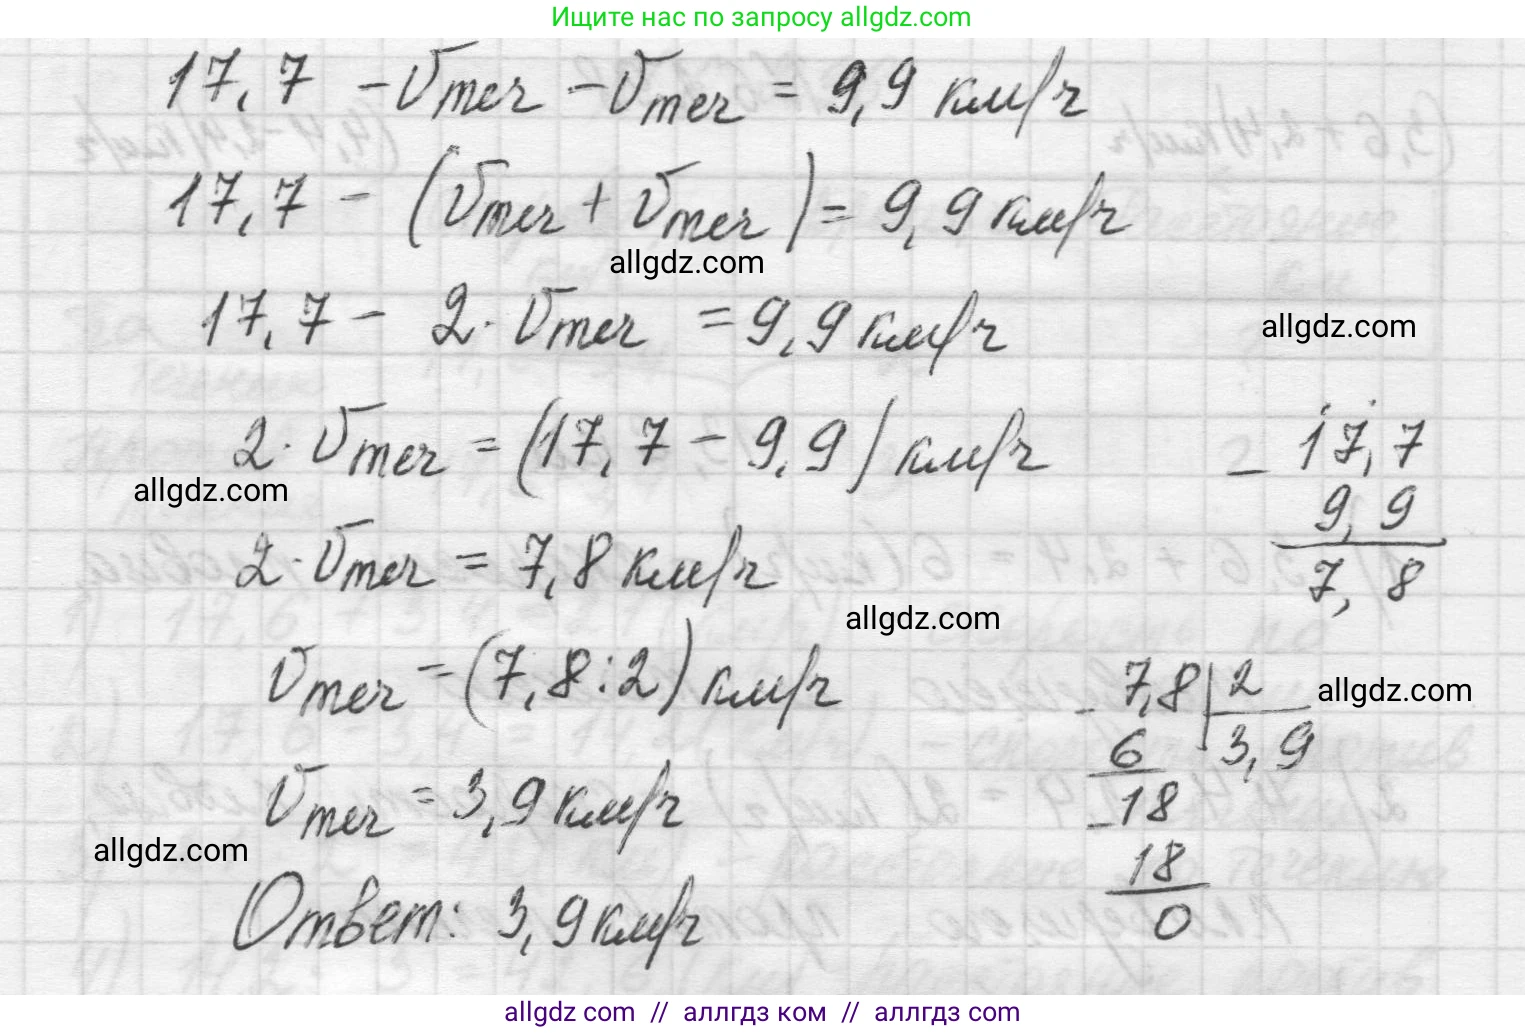 Ищите нас по запросу allgdz.com
17,7 - Vтеч - Vтеч = 9,9 км/ч
17,7 - (Vтеч + Vтеч) = 9,9 км/ч
allgdz.com
17,7 - 2 · Vтеч = 9,9 км/ч
allgdz.com
2 · Vтеч = (17,7 - 9,9) км/ч
- 17,7
9,9
7,8
allgdz.com
2 · Vтеч = 7,8 км/ч
allgdz.com
Vтеч = (7,8 : 2) км/ч
- 7,8 | 2
6 3,9
- 18
18
0
allgdz.com
Vтеч = 3,9 км/ч
allgdz.com
Ответ: 3,9 км/ч
allgdz.com // аллгдз ком // аллгдз com